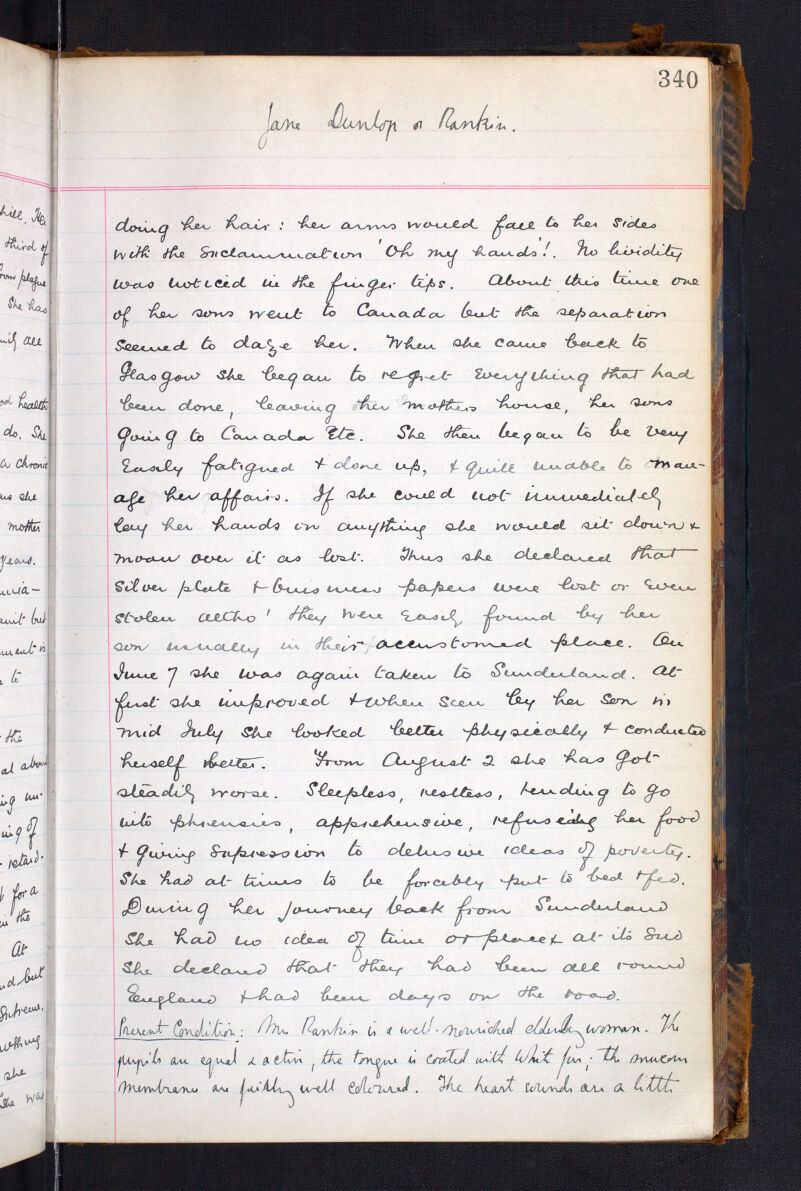 340
Jane Dunlop or Rankin.
doing her hair: her arms would fall to her sides
with the exclammation 'Oh my hands'!. No lividity
was noticed in the finger tips. About this time one
of her sons went to Canada but the separation
seemed to daze her. When she came back to
Glasgow she began to regret everything that had
been done, leaving her mothers house, her sons
going to Canada etc. She then began to be very
easily fatigued & done up, & quite unable to man-
age her affairs. If she could not immediately
lay her hands on anything she would sit down &
moan over it as lost. Thus she declared that
silver plate & business papers were lost or even
stolen altho' they were easily found by her
son usually in their accustomed place. On
June 7 she was again taken to Sunderland. At
first she improved & when seen by her son in
mid July she looked better physically & conducted
herself better. From August 2 she has got
steadily worse. Sleepless, restless, tending to go
into phrensies, apprehensive, refusing her food
& giving expression to delusive ideas of poverty.
She had at times to be forcibly put to bed & fed.
During her journey back from Sunderland
she had no idea of time or place & at its end
she declared that they had been all round
England & had been days on the road.
Present Condition: Mrs Rankin is a well-nourished elderly woman. The
pupils are equal & active, the tongue is coated with white fur; the mucous
membranes are fairly well coloured. The heart sounds are a little
hill. He
third of
from plague
She has
all
health
do. She
a chronic
she
mother
years.
but
to
the
at abou
ing of
retard-
for a
in the
At
but
extreme.
she
She was